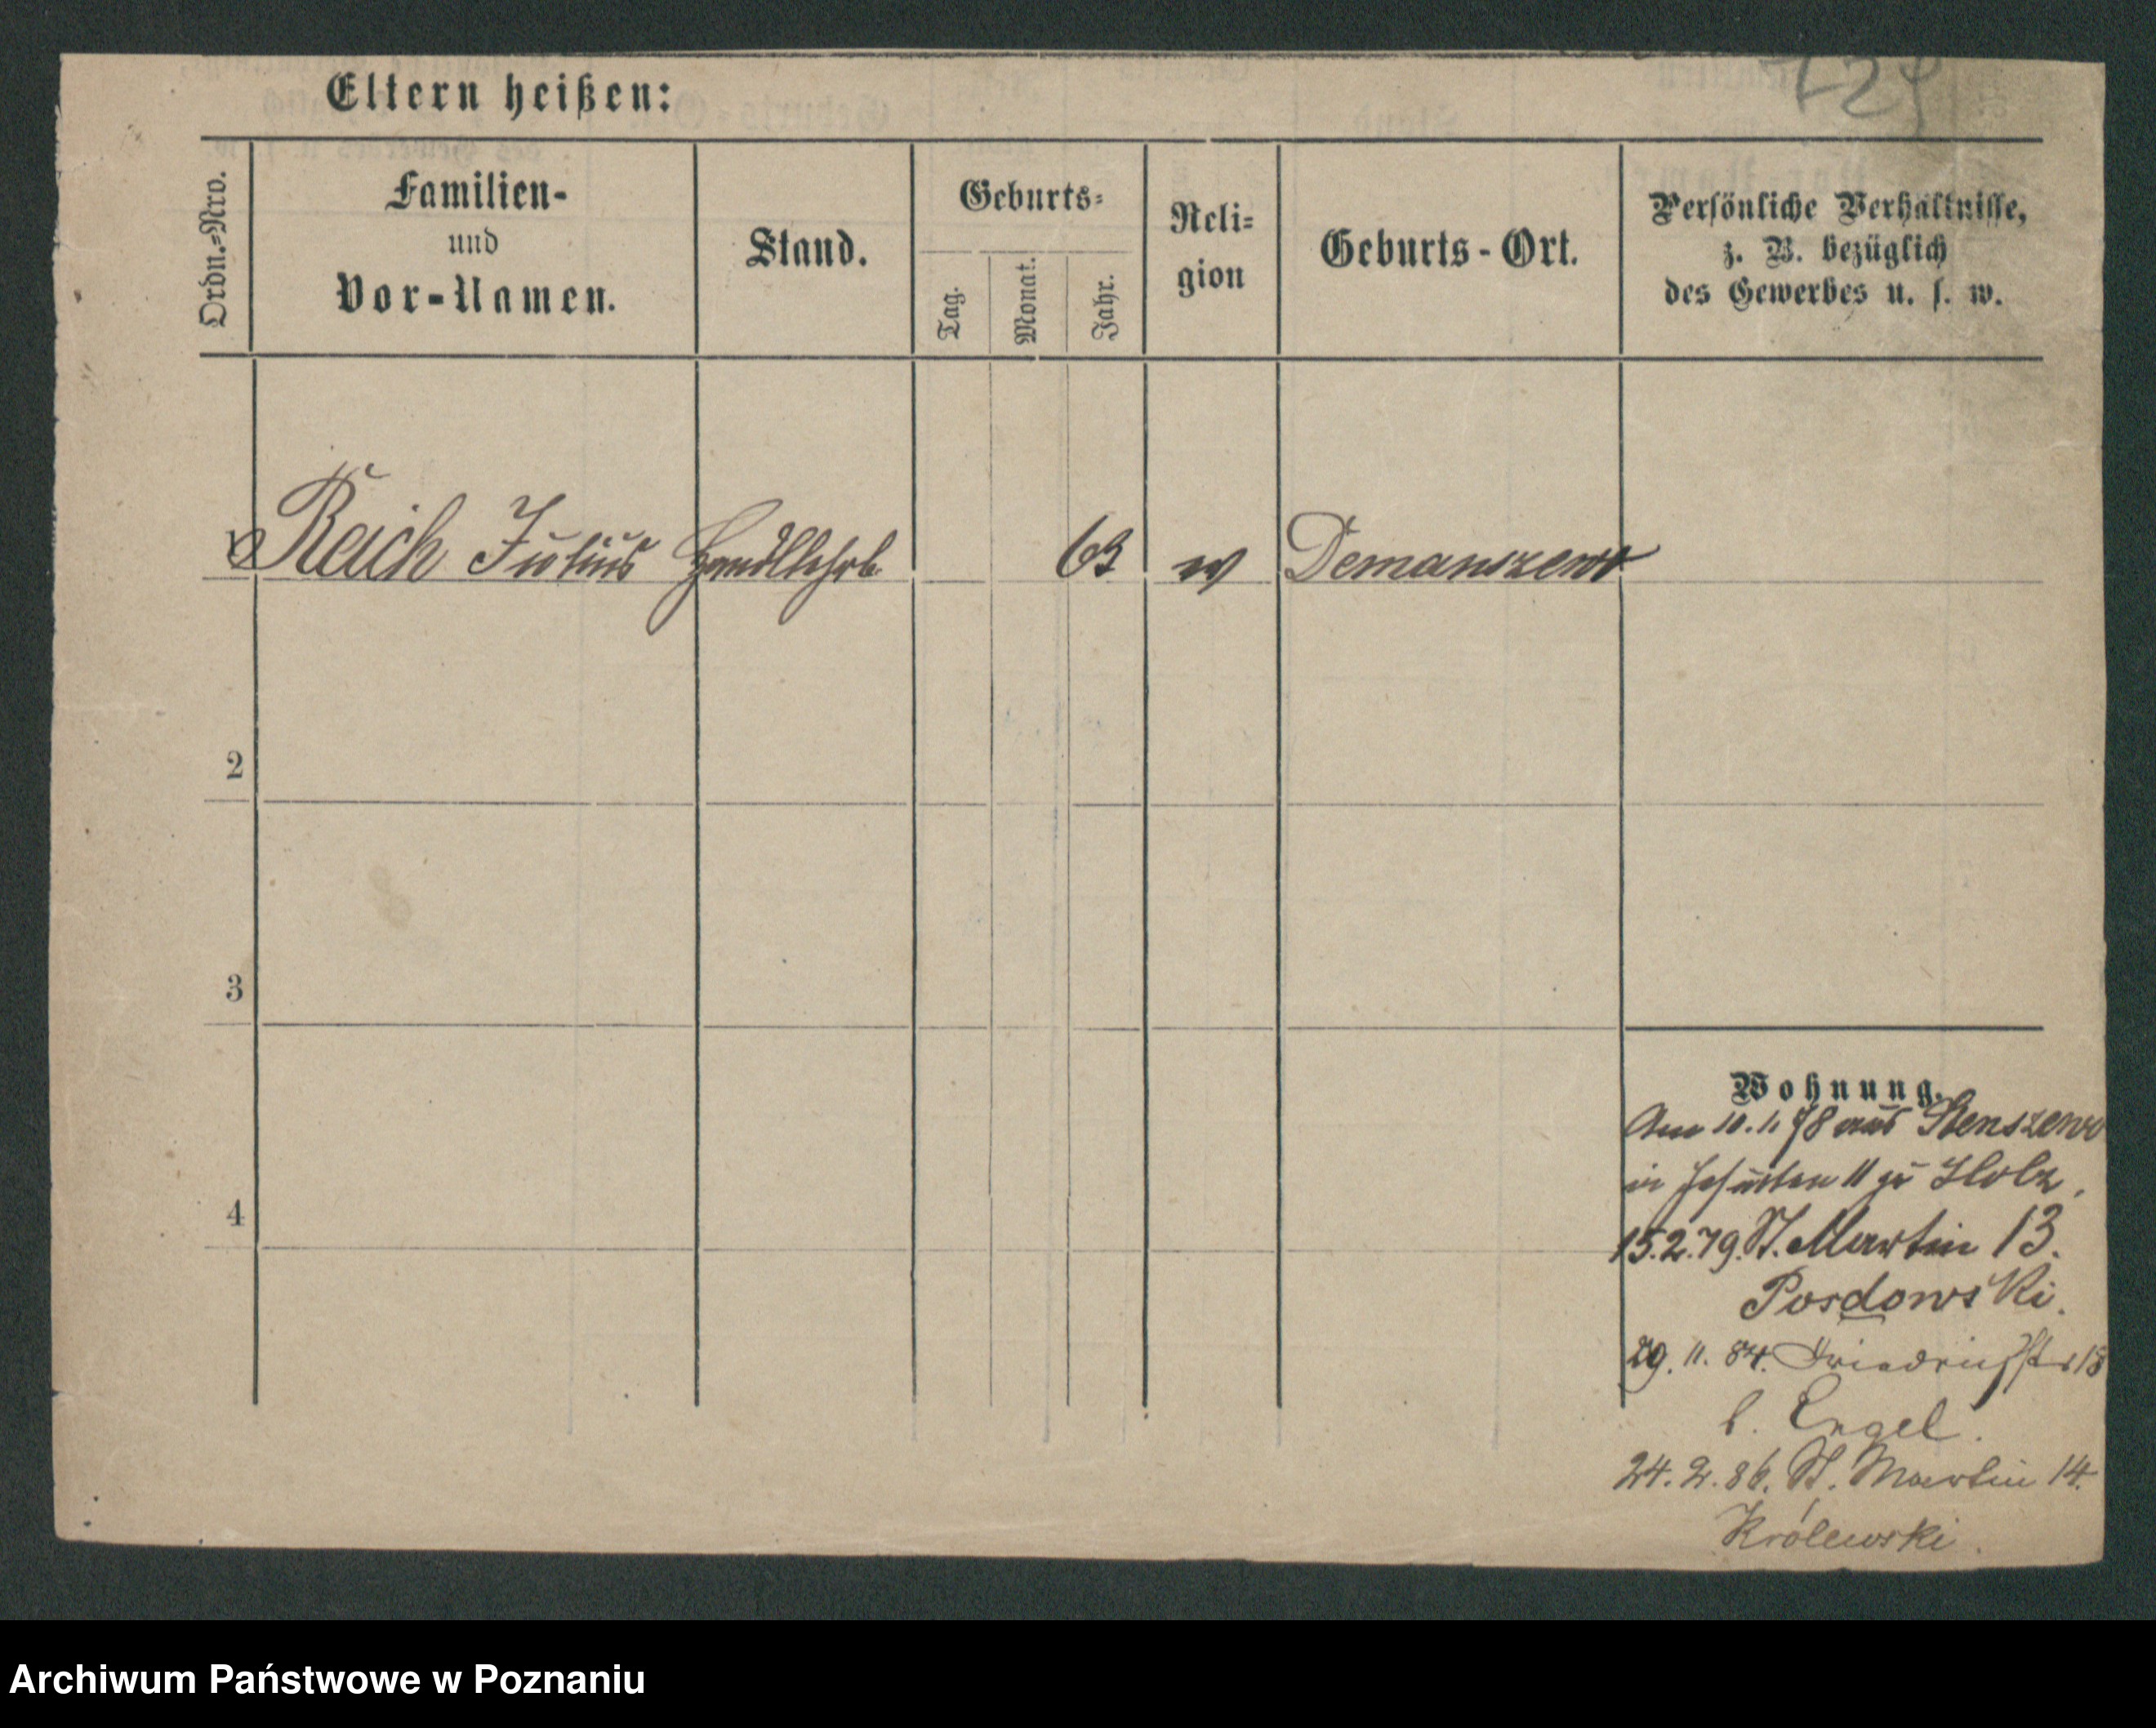 129
Eltern heißen:
Ordn.-Nro.
Familien-
und
Vor-Namen.
Stand.
Geburts-
Tag.
Monat.
Jahr.
Reli-
gion
Geburts-Ort.
Persönliche Verhältnisse,
z. B. bezüglich
des Gewerbes u. s. w.
1 Reich Julius Handllehrl. 63 Demanszewo
2
3
4
Wohnung.
Am 10.1.78 aus Stenszewo
in Jesuiten 11 zu Holz,
15.2.79. St. Martin 13.
Posdowski.
29.11.84. Friedrichstr 18
b. Engel.
24.2.86. St. Martin 14.
Królewski.
Archiwum Państwowe w Poznaniu